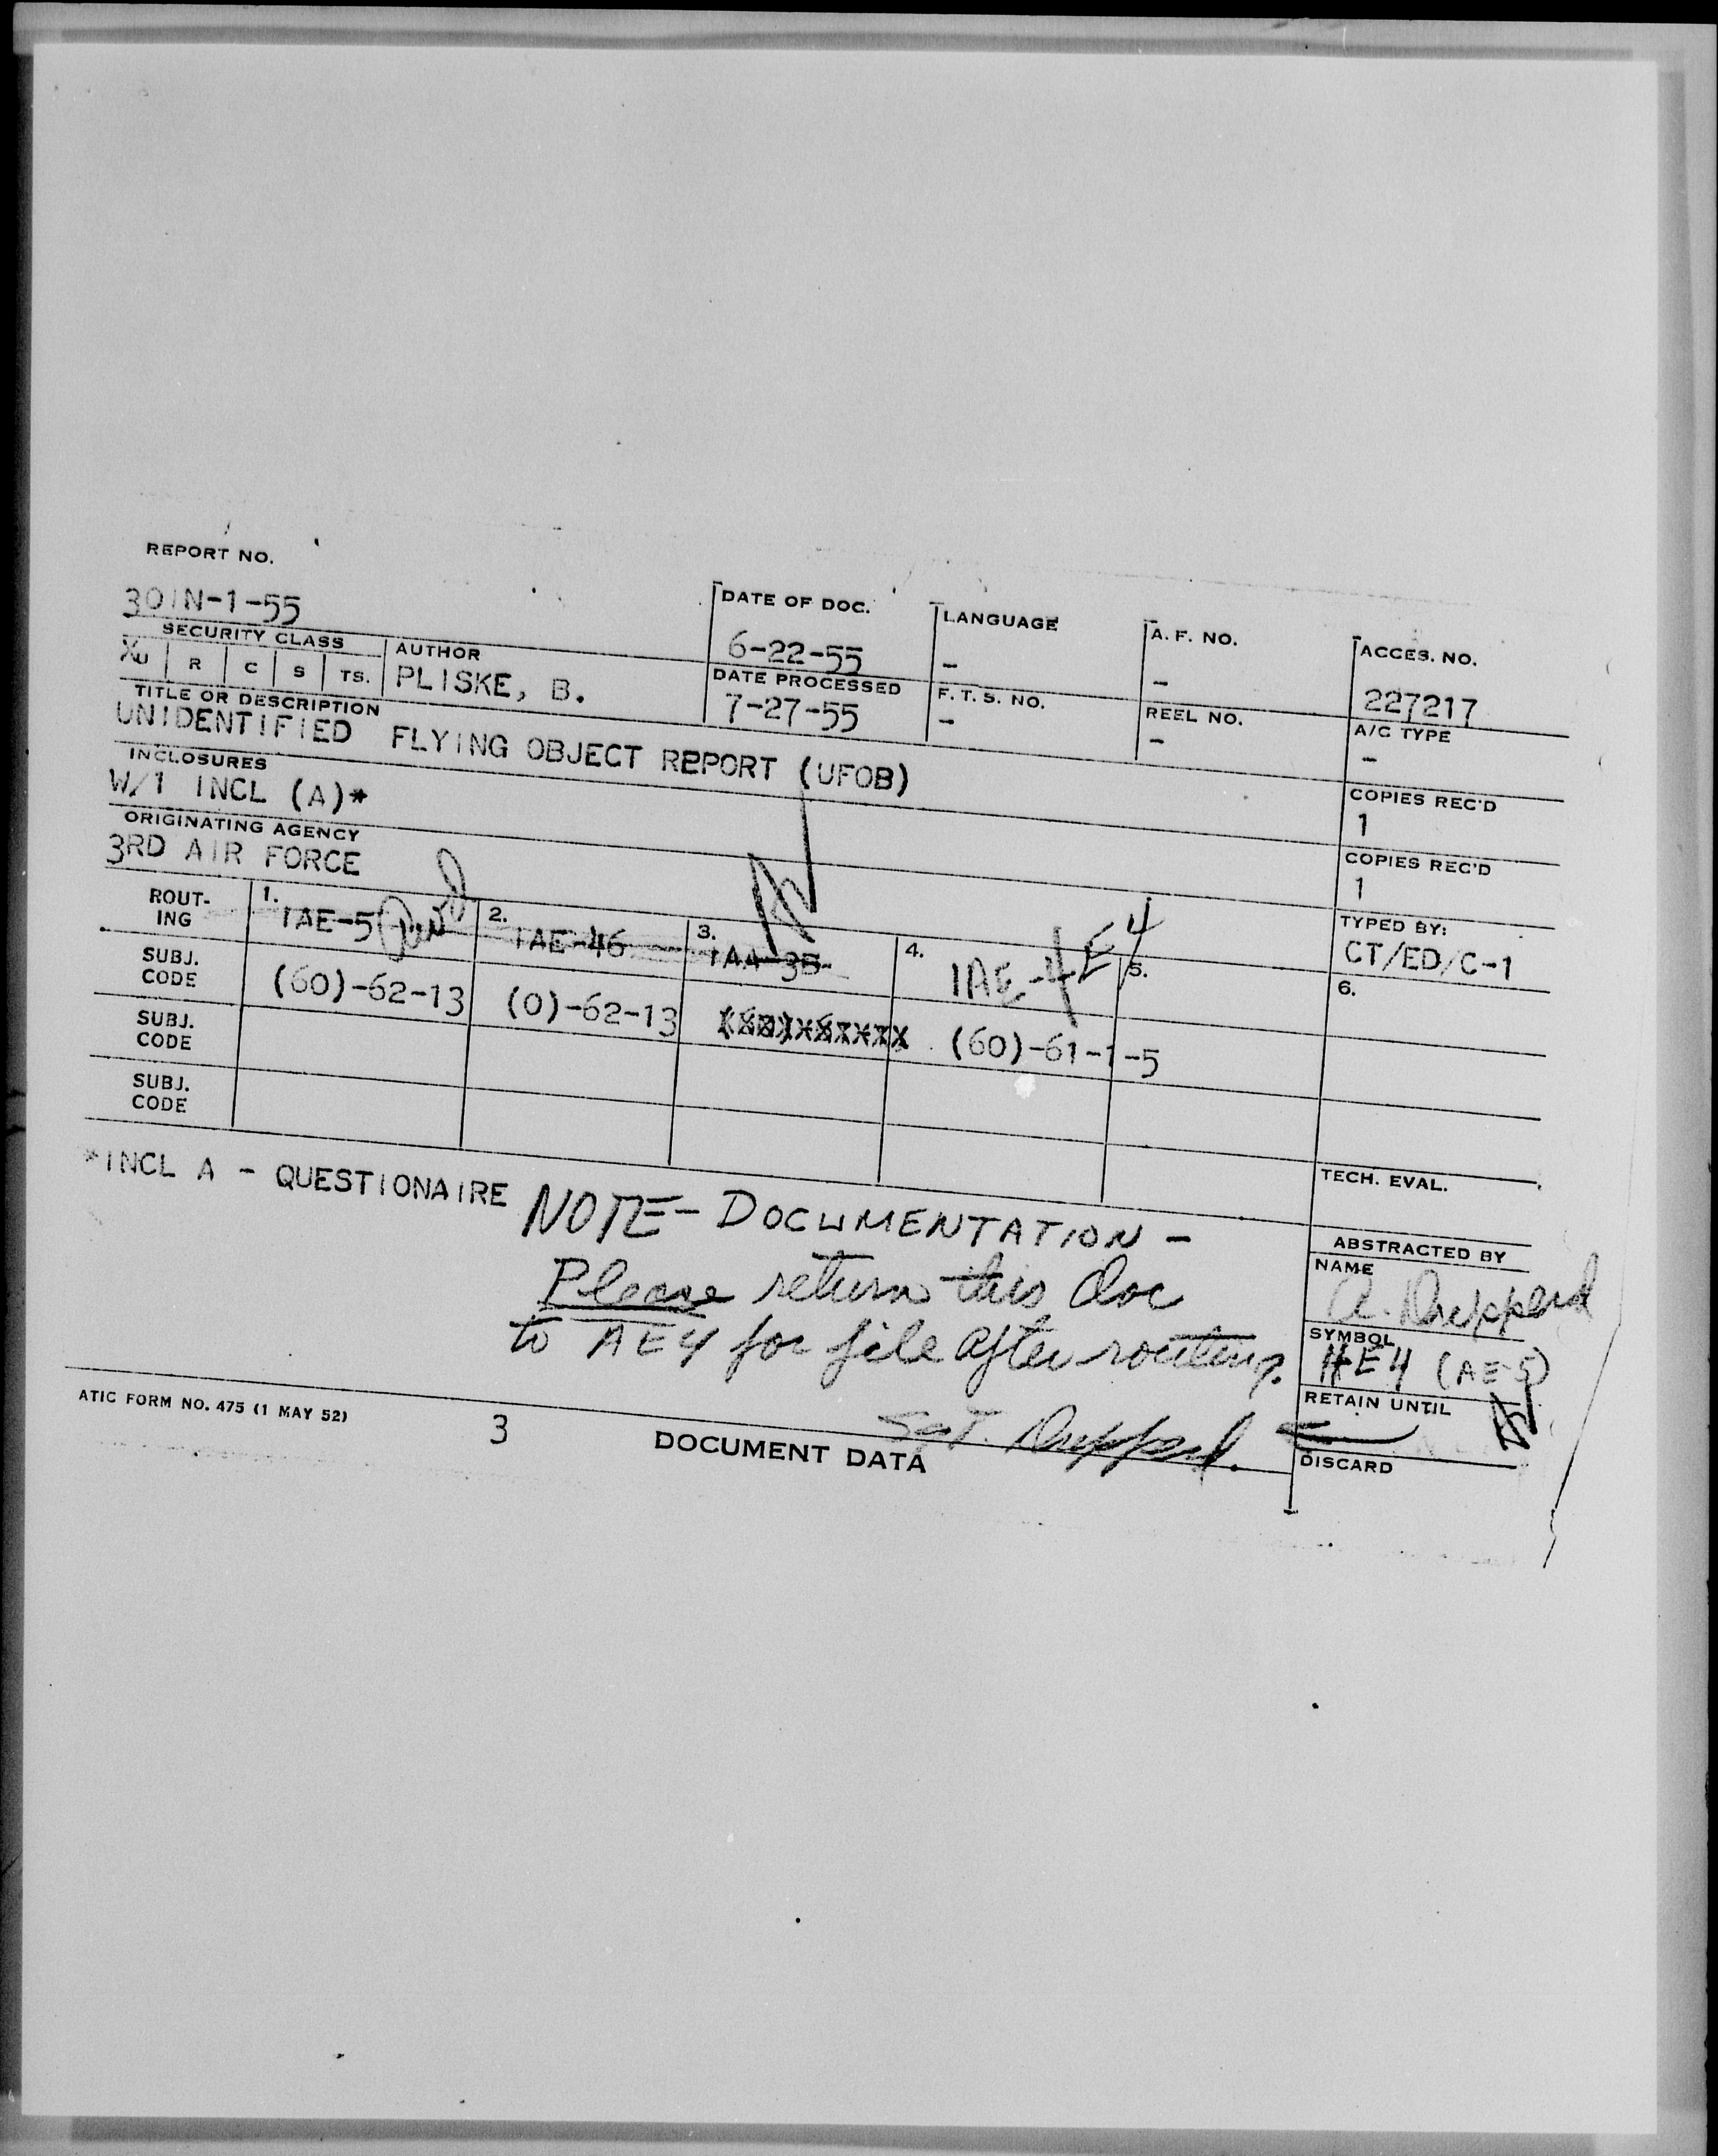 REPORT NO.
30IN-1-55
DATE OF DOC.
6-22-55
LANGUAGE
-
A. F. NO.
-
ACCES. NO.
227217
SECURITY CLASS
XU R C S TS.
AUTHOR
PLISKE, B.
DATE PROCESSED
7-27-55
F. T. S. NO.
-
REEL NO.
-
A/C TYPE
-
TITLE OR DESCRIPTION
UNIDENTIFIED FLYING OBJECT REPORT (UFOB)
COPIES REC'D
1
INCLOSURES
W/1 INCL (A)*
COPIES REC'D
1
ORIGINATING AGENCY
3RD AIR FORCE
TYPED BY:
CT/ED/C-1
ROUT-
ING
1.
IAE-5
2.
IAE-46
3.
IAA-35
4.
IAE-4E4
5.
6.
SUBJ.
CODE
(60)-62-13
(0)-62-13
(60)-61-1-5
SUBJ.
CODE
SUBJ.
CODE
TECH. EVAL.
*INCL A - QUESTIONAIRE
NOTE - DOCUMENTATION -
Please return this doc
to AE4 for file after routing.
Sgt.
ABSTRACTED BY
NAME
A.
SYMBOL
AE4 (AE-5)
RETAIN UNTIL
DISCARD
ATIC FORM NO. 475 (1 MAY 52)
3
DOCUMENT DATA